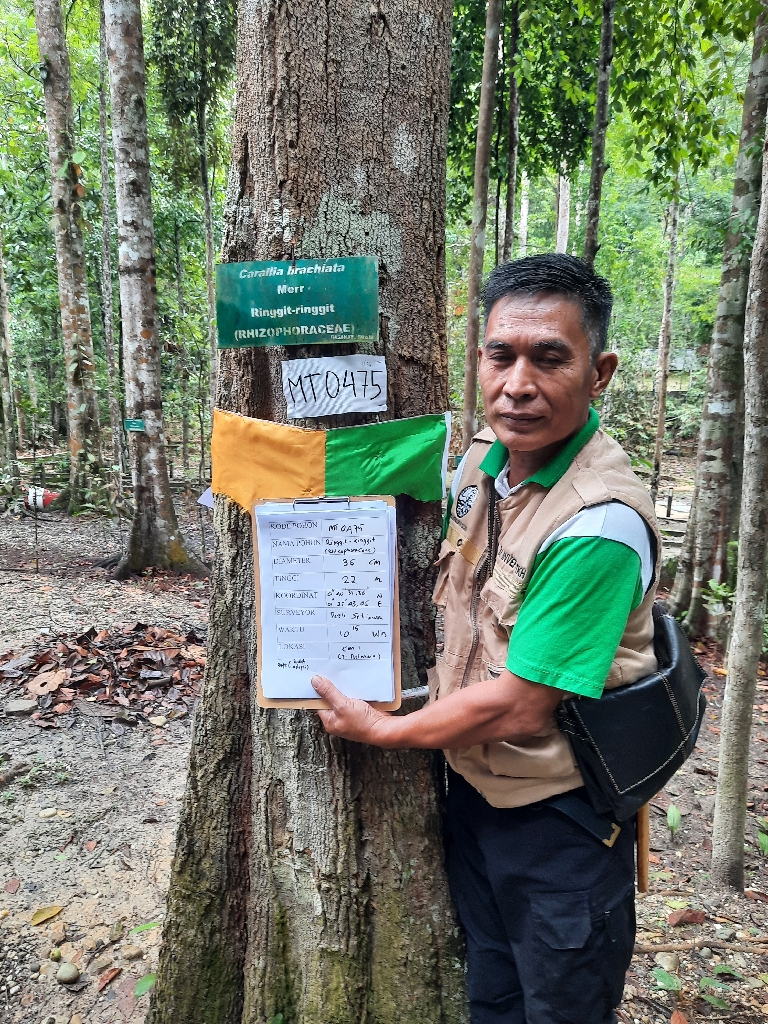 Carallia brachiata
Merr
Ringgit-ringgit
(RHIZOPHORACEAE)
MT0475
KODE POHON MT0475
NAMA POHON Ringgit-Ringgit
(Rhizophoraceae)
DIAMETER 36 cm
TINGGI 22 m
KOORDINAT N
E
SURVEYOR
WAKTU 10 15 Wn
LOKASI